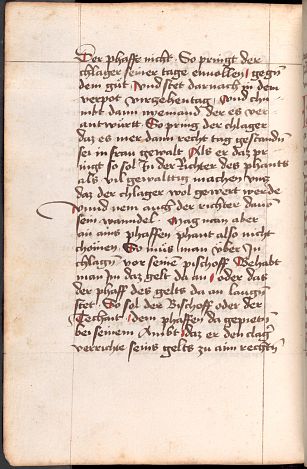 Der phaffe nicht · So pringt der
chlager seiner tage ennollen gegen
dem gut vnd stet darnach zu dem
verpot virzehentag vnd chu
mbt dann niemand der es ver
antwurtt So pring der chlager
daz es mer dann recht tag gestanden
sei in fran gewalt Als er daz pr
ingt so sol in der Richter des phants
als vil gewaltig machen vntz
daz der chlager wol gewert werde
vnnd nem auch der richter dauon
sein wanndel · Mag man aber
an ains phaffen phant also nicht
chomen So mus man uber In
chlagen vor seinem pischoff Behabt
man Im daz gelt da an oder das
der phaff des gelts da an laugen
stet So sol der Bischoff oder der
Techant dem phaffen da gepieten
bei seinem Ambt daz er den clager
verrichte seins gelts zu aim rechten